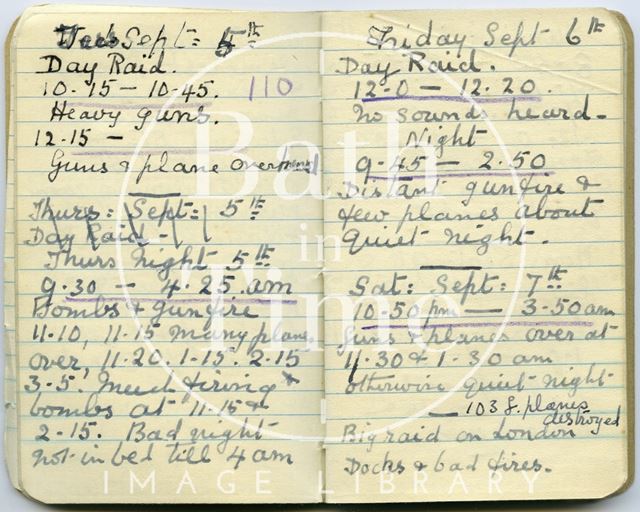 Thurs Sept: 5th
Day Raid.
10.15 — 10.45.
110
Heavy guns.
12.15 —
Guns & plane overhead
Thurs: Sept: 5th
Day Raid -
Thurs Night 5th
9.30 — 4.25 am
Bombs & gunfire
11.10, 11.15 many planes
over, 11.20. 1.15. 2.15
3-5. Much firing &
bombs at 11.15 &
2-15. Bad night
not in bed till 4 am
Friday Sept 6th
Day Raid.
12-0 — 12.20.
No sounds heard.
Night
9-45 — 2.50
Distant gunfire &
few planes about
Quiet night.
Sat: Sept: 7th
10-50 pm — 3-50 am
Guns & planes over at
11.30 & 1-30 am
otherwise quiet night
— 103 G. planes
destroyed
Big raid on London
Docks & bad fires.
Bath
in
Time
IMAGE LIBRARY